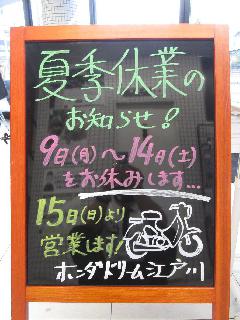 夏季休業の
お知らせ!
9日(月)～14日(土)
をお休みします...
15日(日)より
営業します!
ホンダドリーム江戸川